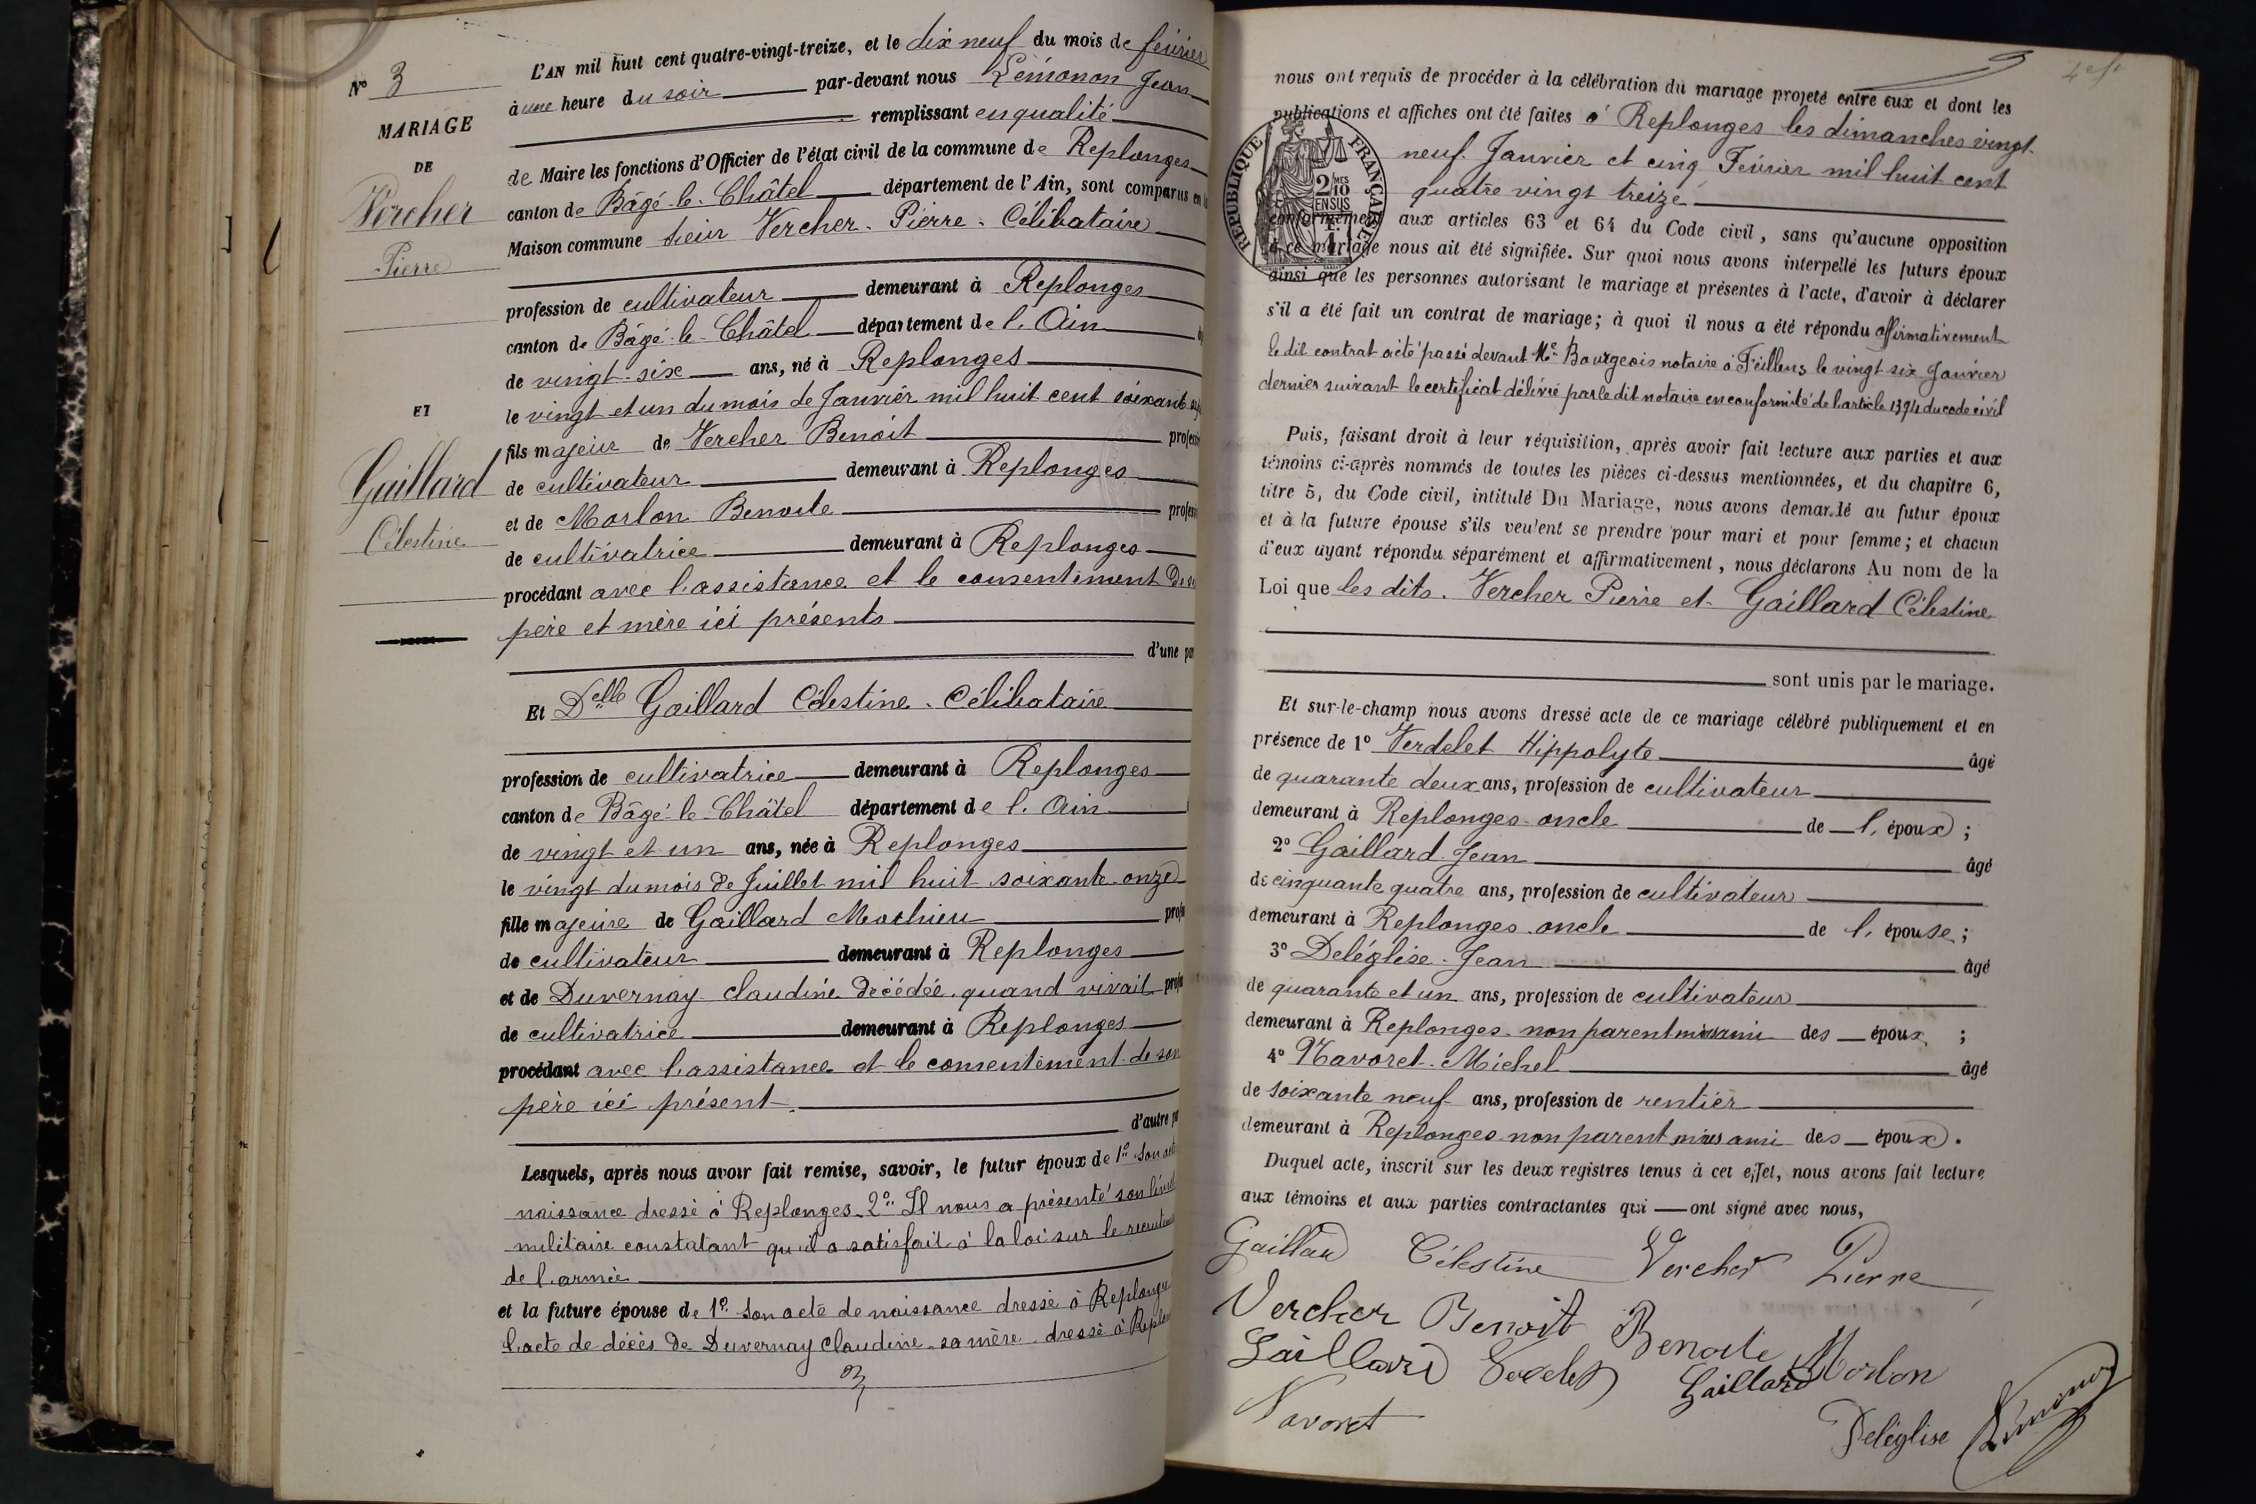 N° 3
MARIAGE
DE
Vercher
Pierre
ET
Gaillard
Célestine
L'AN mil huit cent quatre-vingt-treize, et le dix neuf du mois de février
à une heure du soir par-devant nous Lémonon Jean
remplissant en qualité
de Maire les fonctions d'Officier de l'état civil de la commune de Replonges
canton de Bâgé-le-Châtel département de l'Ain, sont comparus en la
Maison commune sieur Vercher Pierre Célibataire
profession de cultivateur demeurant à Replonges
canton de Bâgé-le-Châtel département de l'Ain
de vingt-six ans, né à Replonges
le vingt et un du mois de Janvier mil huit cent soixante
fils majeur de Vercher Benoit
de cultivateur demeurant à Replonges
et de Morlon Benoite
de cultivatrice demeurant à Replonges
procédant avec l'assistance et le consentement de
père et mère ici présents
d'une
Et Delle Gaillard Célestine. Célibataire
profession de cultivatrice demeurant à Replonges
canton de Bâgé-le-Châtel département de l'Ain
de vingt et un ans, née à Replonges
le vingt du mois de Juillet mil huit soixante onze
fille majeure de Gaillard Mathieu
de cultivateur demeurant à Replonges
et de Duvernay Claudine décédée quand vivait
de cultivatrice demeurant à Replonges
procédant avec l'assistance et le consentement de son
père ici présent.
d'autre
Lesquels, après nous avoir fait remise, savoir, le futur époux de 1° Son
naissance dressé à Replonges 2° Il nous a présenté son
militaire constatant qu'il a satisfait à la loi sur le
de l'armée
et la future épouse de 1° Son acte de naissance dressé à Replonges
l'acte de décès de Duvernay Claudine sa mère dressé à
nous ont requis de procéder à la célébration du mariage projeté entre eux et dont les
publications et affiches ont été faites à Replonges les dimanches vingt
neuf Janvier et cinq Février mil huit cent
quatre vingt treize
RÉPUBLIQUE FRANÇAISE
2/10 EN SUS
conformément aux articles 63 et 64 du Code civil, sans qu'aucune opposition
à ce mariage nous ait été signifiée. Sur quoi nous avons interpellé les futurs époux
ainsi que les personnes autorisant le mariage et présentes à l'acte, d'avoir à déclarer
s'il a été fait un contrat de mariage; à quoi il nous a été répondu affirmativement
le dit contrat a été passé devant Me Bourgeois notaire à Feillens le vingt six Janvier
dernier suivant le certificat délivré par le dit notaire en conformité de l'article 1394 du code civil
Puis, faisant droit à leur réquisition, après avoir fait lecture aux parties et aux
témoins ci-après nommés de toutes les pièces ci-dessus mentionnées, et du chapitre 6,
titre 5, du Code civil, intitulé Du Mariage, nous avons demandé au futur époux
et à la future épouse s'ils veulent se prendre pour mari et pour femme; et chacun
d'eux ayant répondu séparément et affirmativement, nous déclarons Au nom de la
Loi que les dits Vercher Pierre et Gaillard Célestine
sont unis par le mariage.
Et sur-le-champ nous avons dressé acte de ce mariage célébré publiquement et en
présence de 1° Verdelet Hippolyte âgé
de quarante deux ans, profession de cultivateur
demeurant à Replonges oncle de l'époux;
2° Gaillard Jean âgé
de cinquante quatre ans, profession de cultivateur
demeurant à Replonges oncle de l'épouse;
3° Deléglise Jean âgé
de quarante et un ans, profession de cultivateur
demeurant à Replonges non parent mais ami des époux;
4° Navoret Michel âgé
de soixante neuf ans, profession de rentier
demeurant à Replonges non parent mais ami des époux.
Duquel acte, inscrit sur les deux registres tenus à cet effet, nous avons fait lecture
aux témoins et aux parties contractantes qui ont signé avec nous,
Gaillard Célestine Vercher Pierre
Vercher Benoit Benoite Morlon
Gaillard Verdelet Gaillard
Navoret Deléglise Lémonon